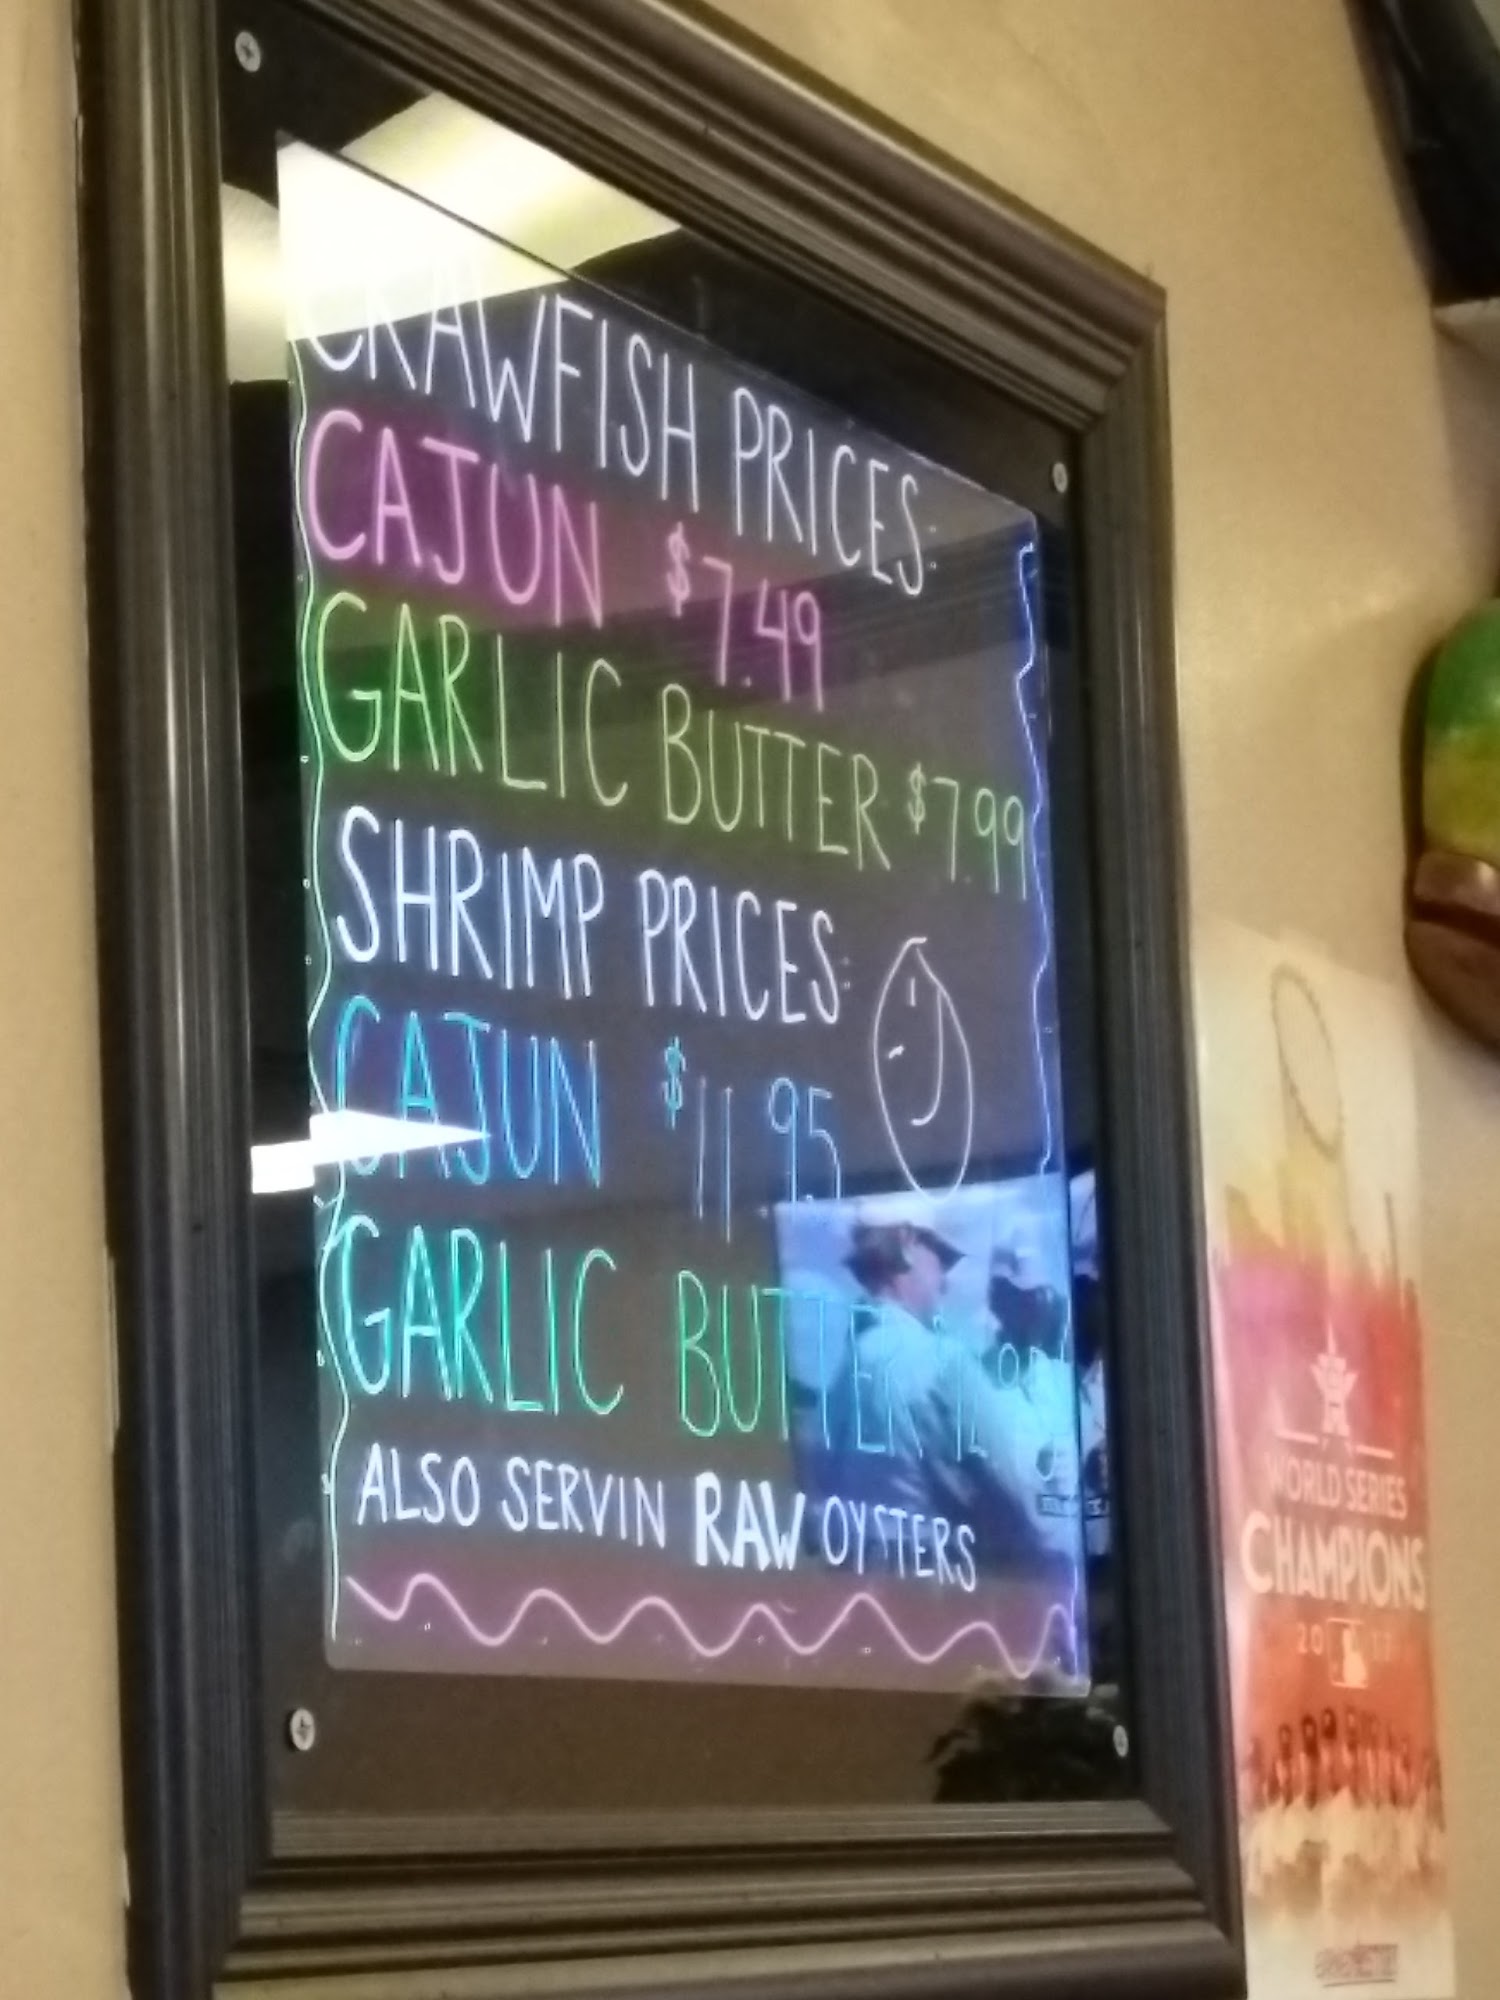 CRAWFISH PRICES:
CAJUN $7.49
GARLIC BUTTER $7.99
SHRIMP PRICES:
CAJUN $11.95
GARLIC BUTTER
ALSO SERVIN RAW OYSTERS
WORLD SERIES
CHAMPIONS